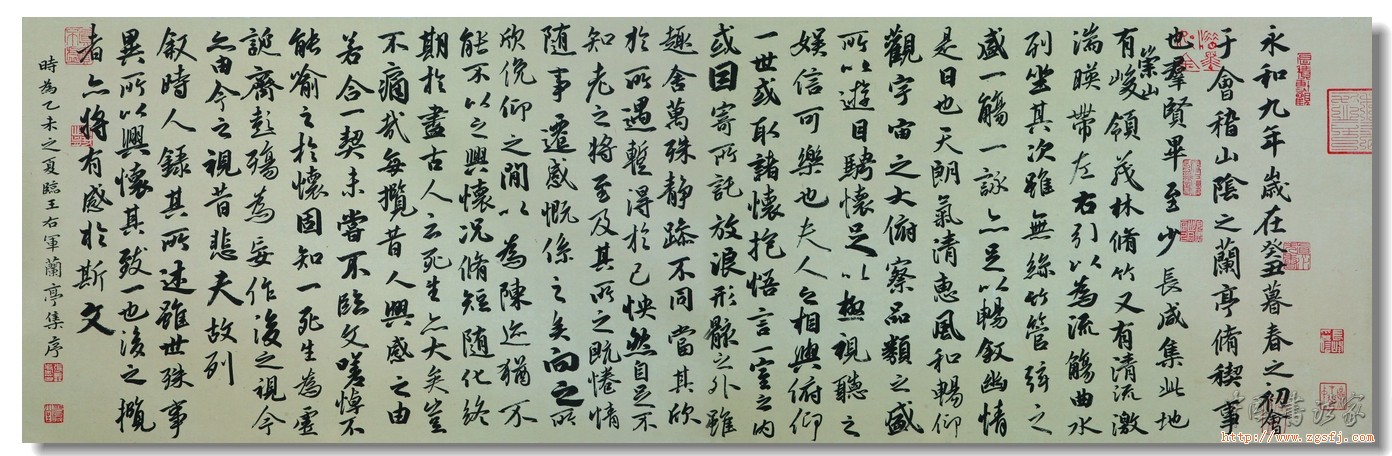 永和九年歲在癸丑暮春之初會
于會稽山陰之蘭亭脩稧事
也羣賢畢至少長咸集此地
有崇山峻領茂林脩竹又有清流激
湍暎帶左右引以為流觴曲水
列坐其次雖無絲竹管弦之
盛一觴一詠亦足以暢敘幽情
是日也天朗氣清惠風和暢仰
觀宇宙之大俯察品類之盛
所以遊目騁懷足以極視聽之
娛信可樂也夫人之相與俯仰
一世或取諸懷抱悟言一室之內
或因寄所託放浪形骸之外雖
趣舍萬殊靜躁不同當其欣
於所遇暫得於己怏然自足不
知老之將至及其所之既惓情
隨事遷感慨係之矣向之所
欣俛仰之間以為陳迹猶不
能不以之興懷況脩短隨化終
期於盡古人云死生亦大矣豈
不痛哉每攬昔人興感之由
若合一契未嘗不臨文嗟悼不
能喻之於懷固知一死生為虛
誕齊彭殤為妄作後之視今
亦由今之視昔悲夫故列
敘時人錄其所述雖世殊事
異所以興懷其致一也後之攬
者亦將有感於斯文
時為乙未之夏臨王右軍蘭亭集序
中國書法家
http://www.zgsfj.com